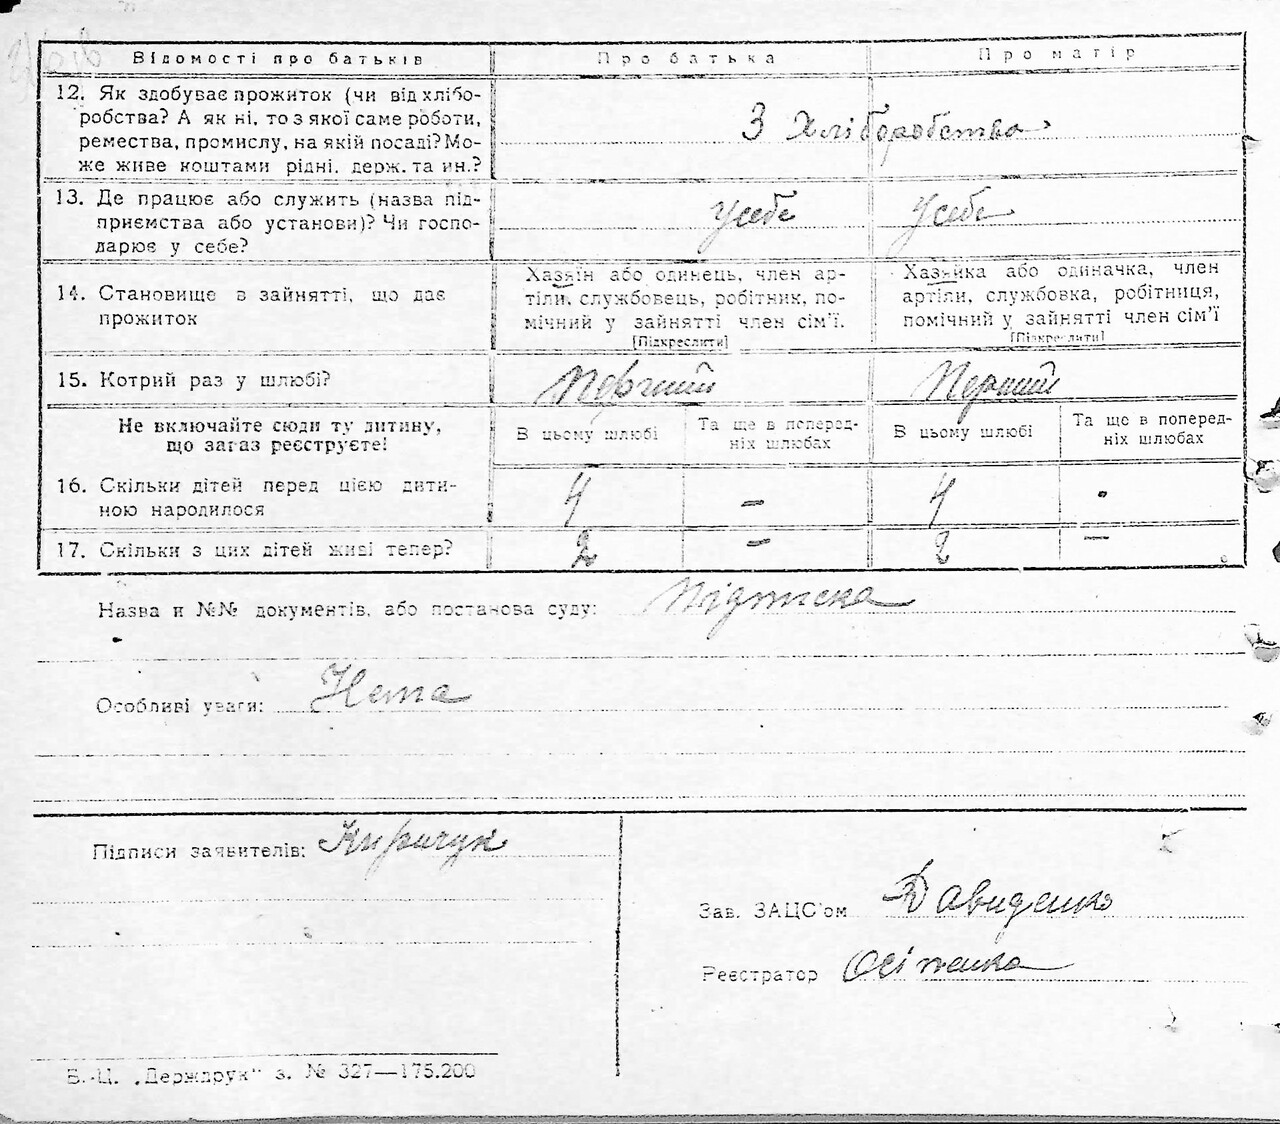 Відомості про батьків Про батька Про матір
12. Як здобуває прожиток (чи від хлібо-
робства? А як ні, то з якої саме роботи,
ремества, промислу, на якій посаді? Мо-
же живе коштами рідні, держ. та ин.?
З Хліборобства
13. Де працює або служить (назва під-
приємства або установи)? Чи госпо-
дарює у себе?
Усебе Усебе
14. Становище в зайнятті, що дає
прожиток
Хазяїн або одинець, член ар-
тілі, службовець, робітник, по-
мічний у зайнятті член сім'ї.
[Підкреслити]
Хазяйка або одиначка, член
артіли, службовка, робітниця,
помічний у зайнятті член сім'ї
[Підкреслити]
15. Котрий раз у шлюбі? Перший Перший
Не включайте сюди ту дитину,
що зараз реєструєте!
В цьому шлюбі
Та ще в поперед-
ніх шлюбах
В цьому шлюбі
Та ще в поперед-
ніх шлюбах
16. Скільки дітей перед цією дити-
ною народилося
4 – 4
17. Скільки з цих дітей живі тепер? 2 – 2 –
Назва и №№ документів, або постанова суду: Підписка
Особливі уваги: Нема
Підписи заявителів: Киричук
Зав. ЗАЦС'ом Давиденко
Реєстратор Осіпенко
Б.-Ц. „Держдрук" з. № 327—175.200